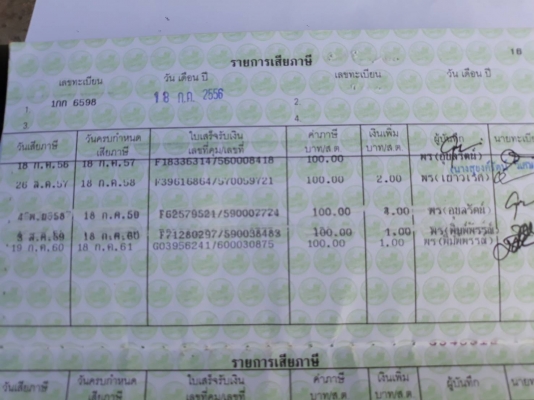 รายการเสียภาษี
18
เลขทะเบียน วัน เดือน ปี เลขทะเบียน วัน เดือน ปี
1 1กก 6598 18 ก.ค. 2556 2
3 4
วันเสียภาษี วันครบกำหนด เสียภาษี ใบเสร็จรับเงิน เลขที่คุม/เลขที่ ค่าภาษี บาท/ส.ต. เงินเพิ่ม บาท/ส.ต. ผู้บันทึก นายทะเบียน
18 ก.ค.56 18 ก.ค.57 F18336314/560008418 100.00
26 ส.ค.57 18 ก.ค.58 F39616864/570059721 100.00 2.00
18 ก.ค.59 F62579521/590007724 100.00 4.00
3 ส.ค.59 18 ก.ค.60 F71280297/590038483 100.00 1.00
19 ก.ค.60 18 ก.ค.61 G03958241/600030875 100.00 1.00
รายการเสียภาษี
วันเสียภาษี วันครบกำหนด เสียภาษี ใบเสร็จรับเงิน เลขที่คุม/เลขที่ ค่าภาษี บาท/ส.ต. เงินเพิ่ม บาท/ส.ต. ผู้บันทึก